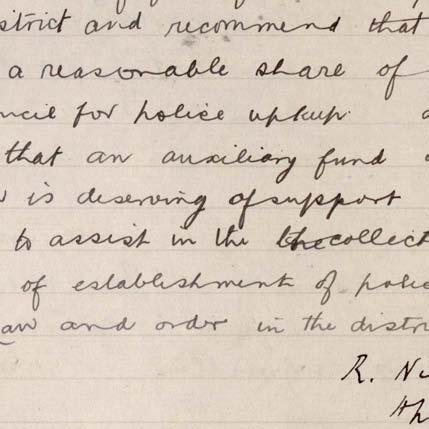 strict and recommend that
a reasonable share of
uncil for police upkup
that an auxiliary fund
is deserving of support
to assist in the the collect
of establishment of polic
Law and order in the distri
R. N